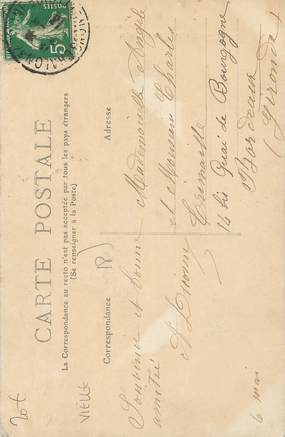 CARTE POSTALE
La Correspondance au recto n'est pas acceptée par tous les pays étrangers
(Se renseigner à la Poste)
Correspondance
Adresse
Souvenir et bonne
amitié
6 mai
Mademoiselle Angèle
et Monsieur Charles
14 bis Quai de Bourgogne
Bordeaux
(Gironde)
POSTES
5
20f
VIEUX